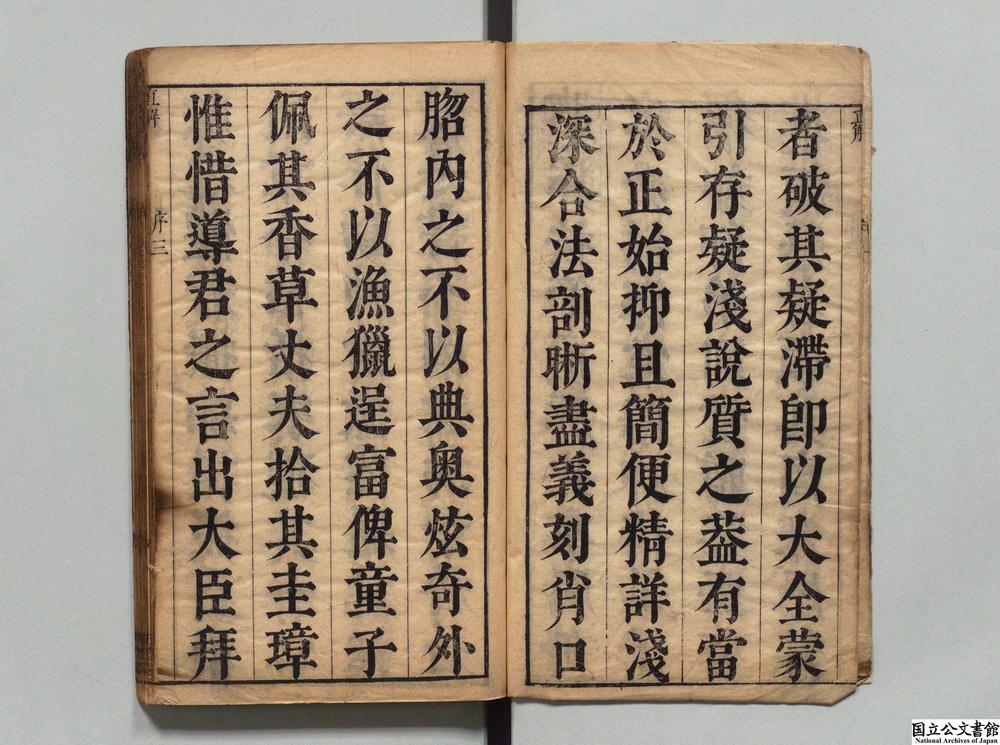 者破其疑滯即以大全蒙
引存疑淺說質之葢有當
於正始抑且簡便精詳淺
深合法剖晣盡義刻肖口
胳內之不以典奧炫奇外
之不以漁獵逞富俾童子
佩其香草丈夫拾其圭璋
惟惜導君之言出大臣拜
直解
序三
国立公文書館
National Archives of Japan